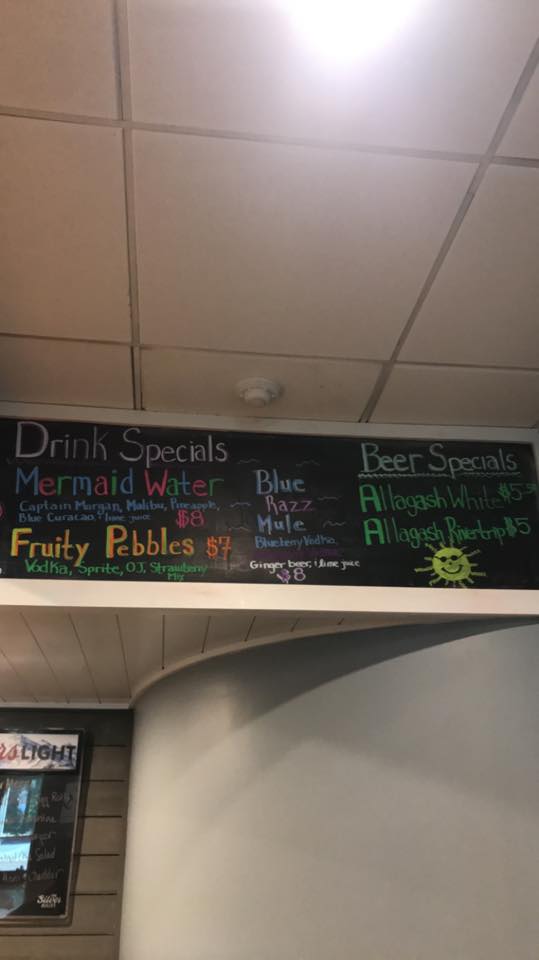 Drink Specials
Mermaid Water
Captain Morgan, Malibu, Pineapple,
Blue Curacao, + lime juice
$8
Fruity Pebbles $7
Vodka, Sprite, OJ, Strawberry
Mix
Blue
Razz
Mule
Blueberry Vodka,
Ginger beer, + lime juice
$8
Beer Specials
Allagash White $5.50
Allagash Rivertrip $5
LIGHT
Salad
Cheddar
Silver
Bullet